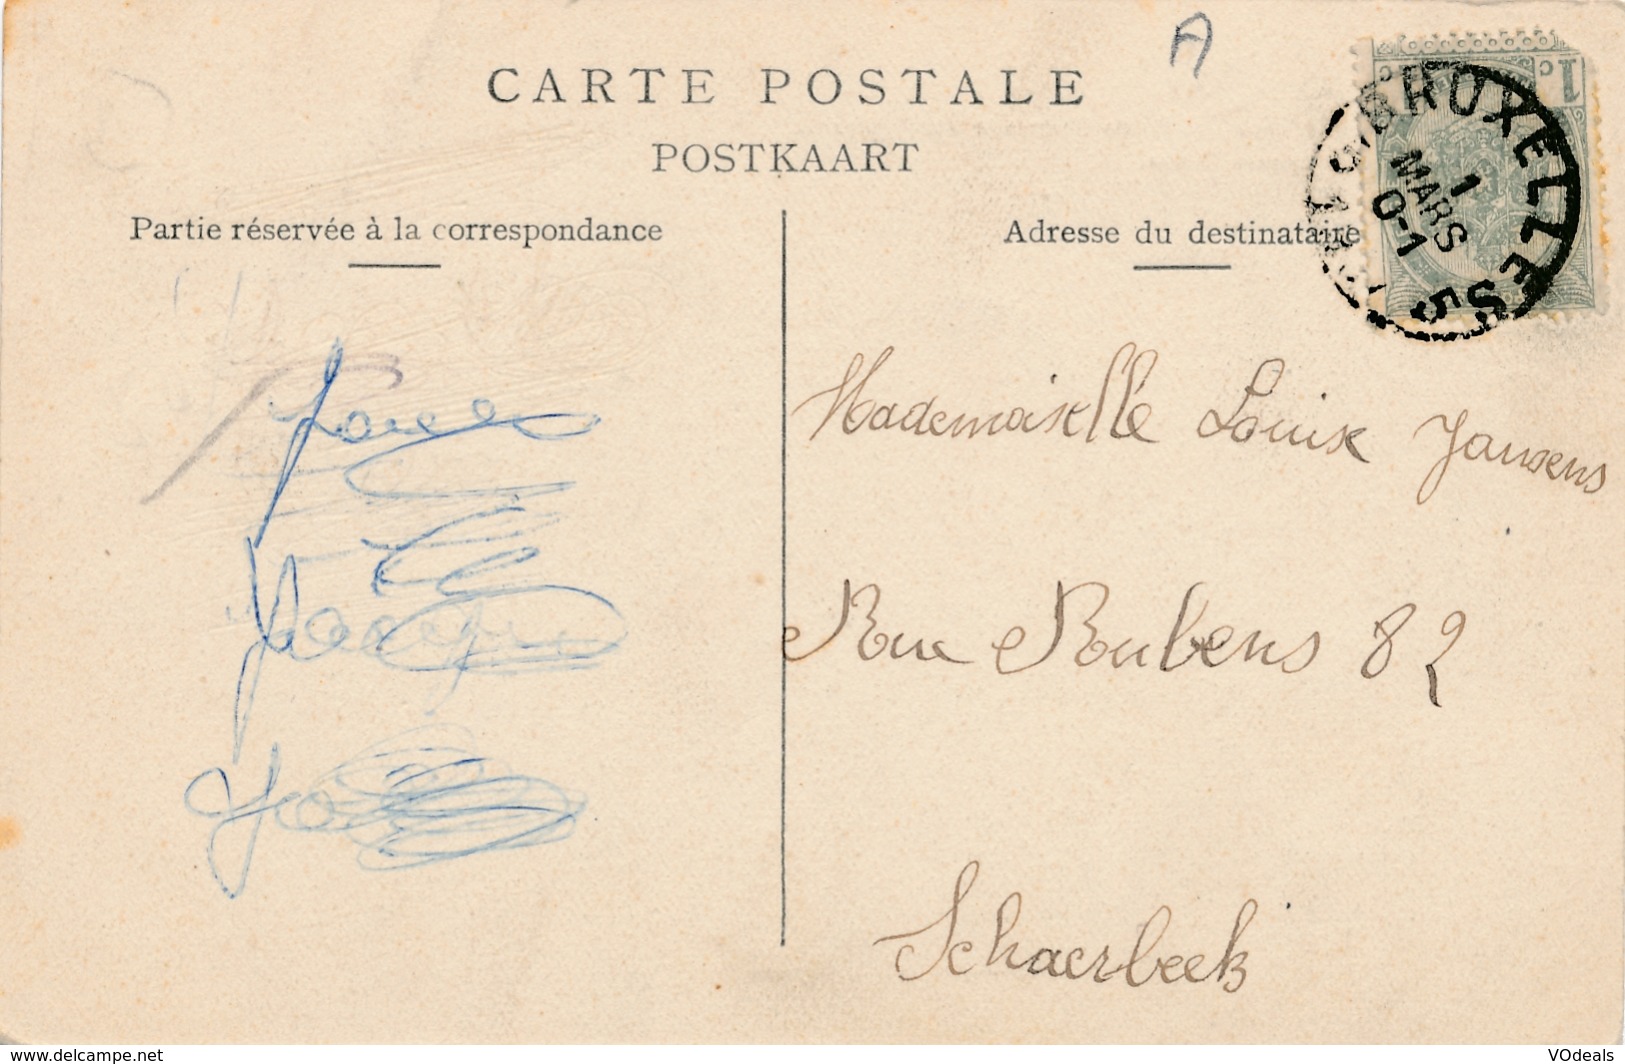 A
CARTE POSTALE
POSTKAART
Partie réservée à la correspondance
Adresse du destinataire
1c
BRUXELLES 5
1
MARS
0-1
Mademoiselle Louise Jansens
Rue Rubens 82
Schaerbeek
www.delcampe.net
VOdeals